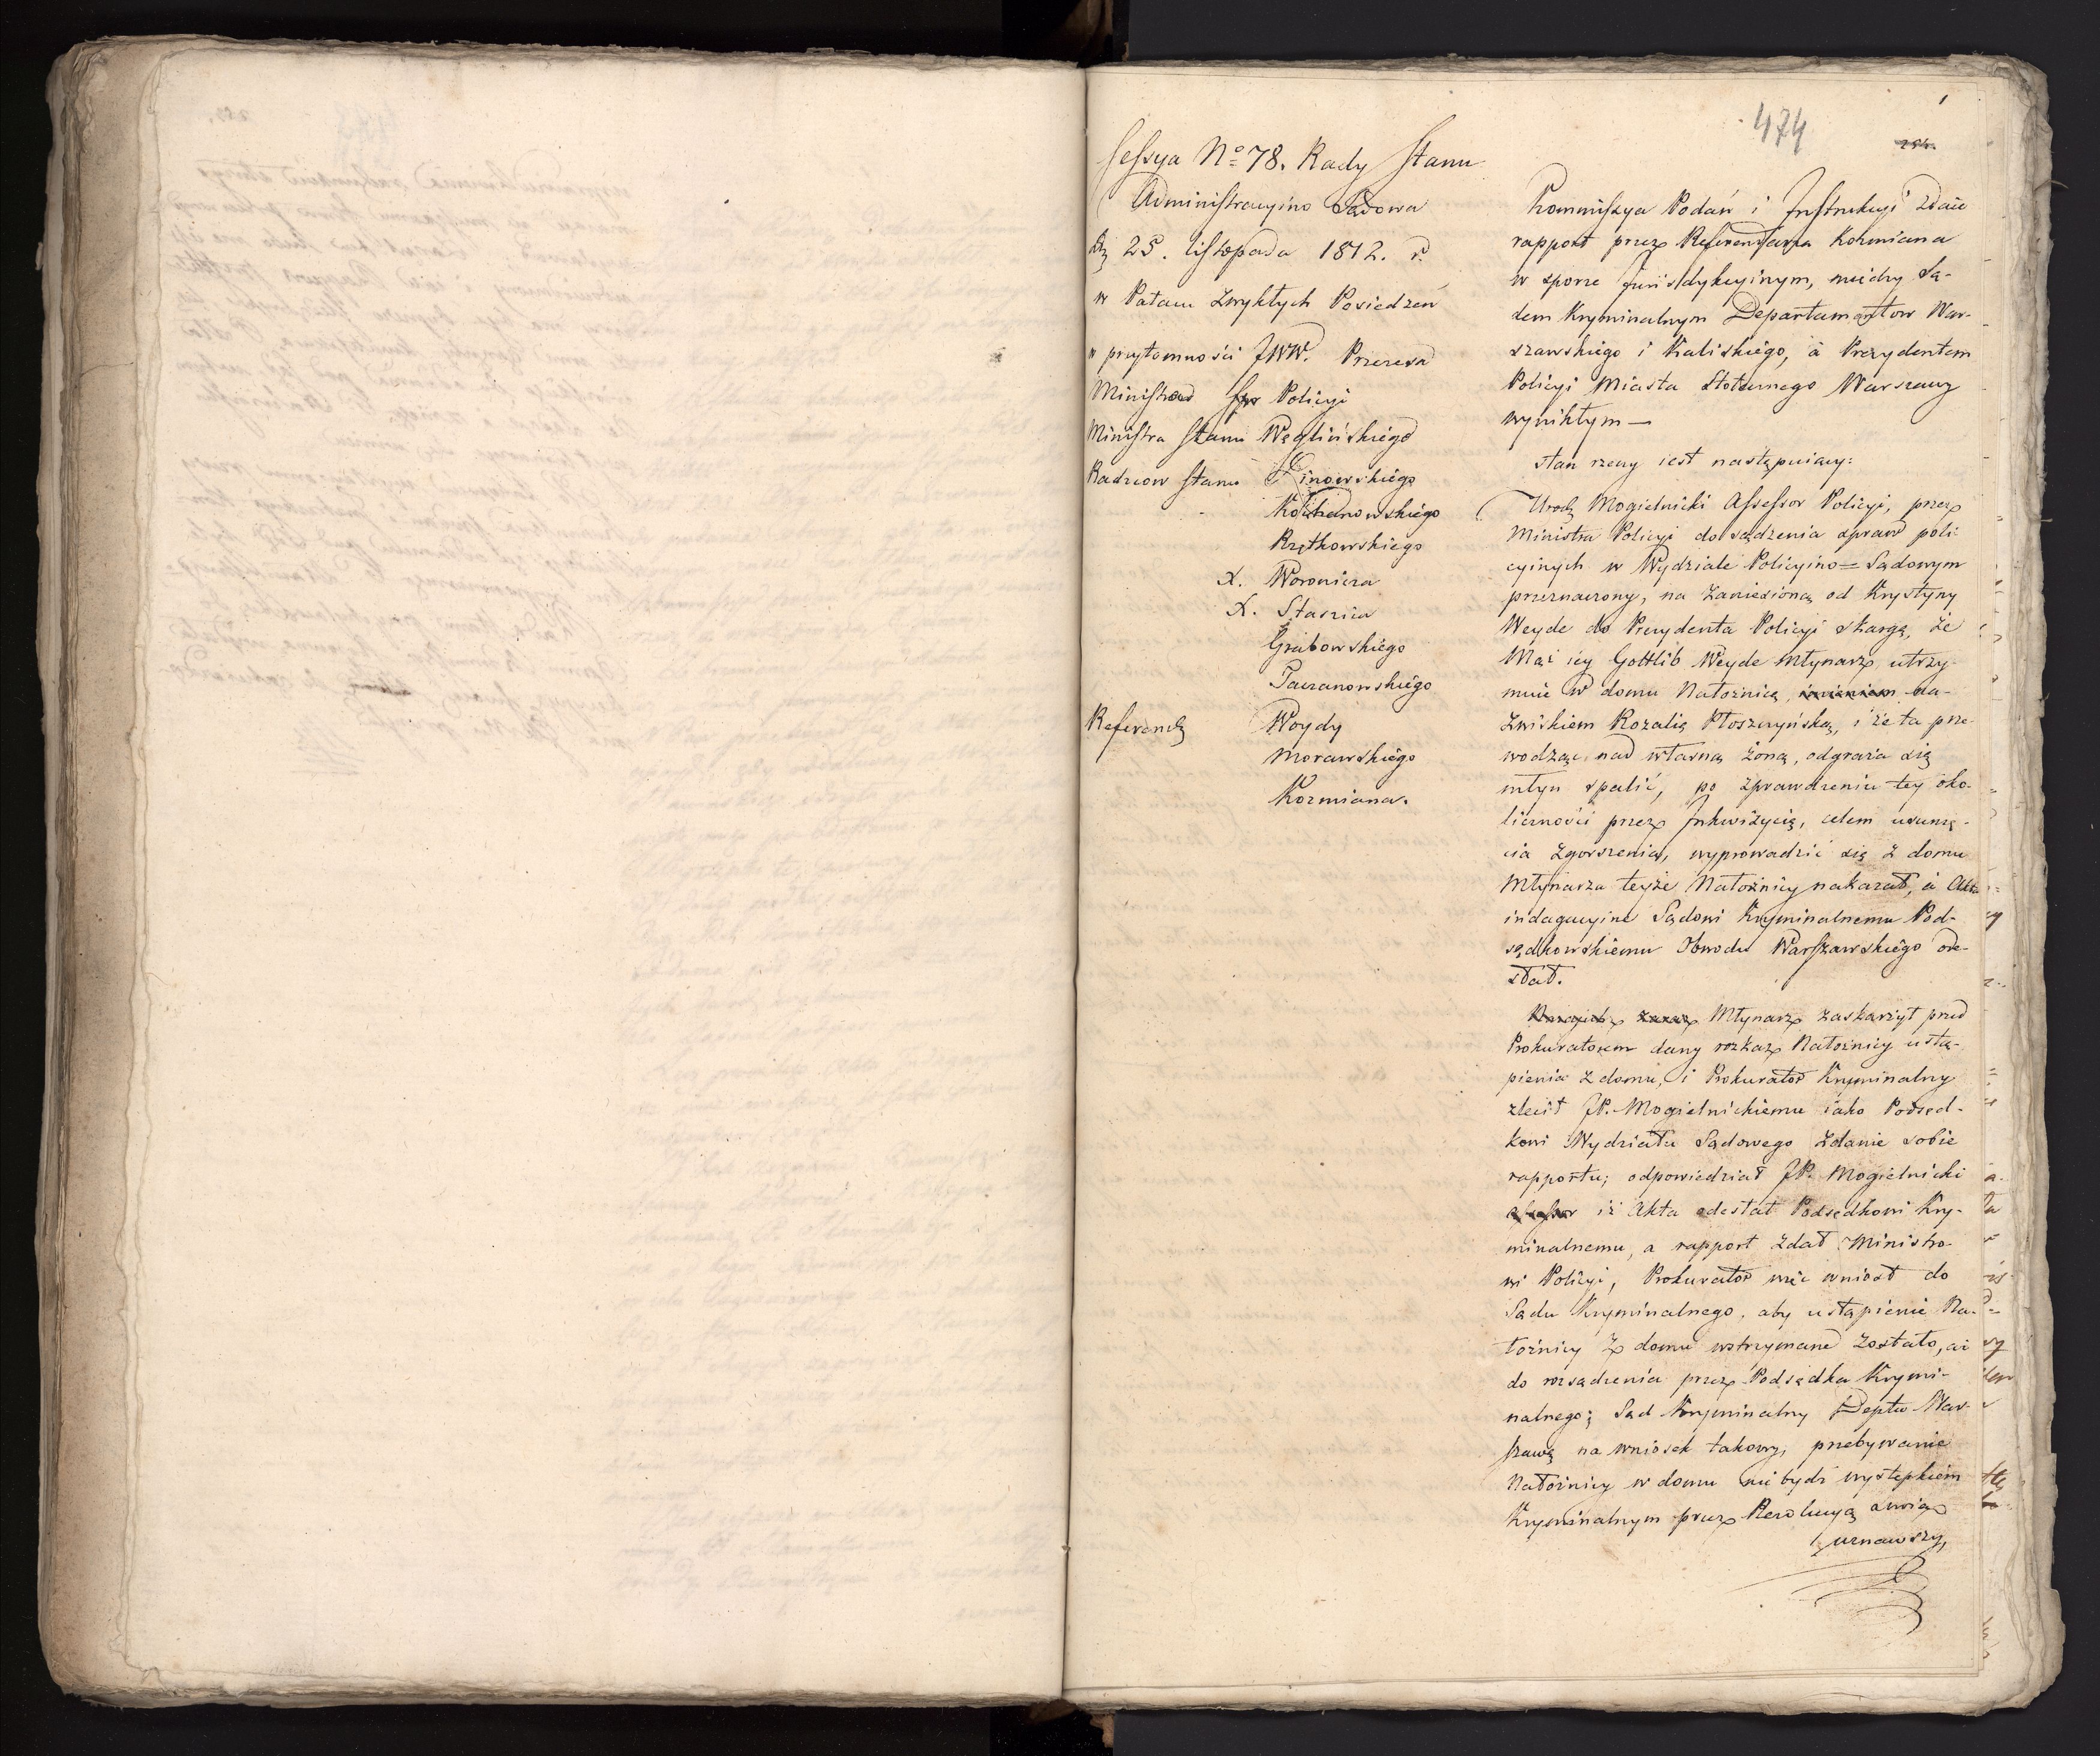 474
254.
Sessya No 78. Rady Stanu
Administracyino Sądowa
Dz 25. listopada 1812. r.
w Pałacu Zwykłych Posiedzeń
w przytomności JWW. Prezesa
Ministrów Policyi
Ministra Stanu Węglińskiego
Radzcow Stanu Linowskiego
Kochanowskiego
Rzętkowskiego
X. Woronicza
X. Staszica
Grabowskiego
Taczanowskiego
Referendz Woydy
Morawskiego
Kozmiana.
Kommissya Podań i Instrukcyi Zdaie
rapport przez Referendarza Kozmiana
w sporze jurisdykcyinym, między Są-
dem Kryminalnym Departamentow War-
szawskiego i Kaliskiego, à Prezydentem
Policyi Miasta Stołecznego Warszawy
wynikłym —
stan rzeczy iest następuiący:
Urodz Mogielnicki Assessor Policyi, przez
Ministra Policyi do sądzenia spraw poli-
cyinych w Wydziale Policyino=Sądowym
przeznaczony, na zaniesioną od Krystyny
Weyde do Prezydenta Policyi skargę, że
Mąż iey Gottlib Weyde Młynarz, utrzy-
muie w domu Nałożnicę, imieniem na-
zwiskiem Rozalią Płoszczyńską, i że ta prze-
wodząc nad własną żoną, odgraża się
młyn spalić, po sprawdzeniu tey oko-
liczności przez Inkwizycią, celem usunię-
cia Zgorszenia, wyprowadzić się z domu
Młynarza teyże Nałożnicy nakazał, à Akta
indagacyine Sądowi Kryminalnemu Pod-
sędkowskiemu Obwodu Warszawskiego ode-
słał.
Młynarz zaskarżył przed
Prokuratorem dany rozkaz Nałożnicy ustą-
pienia z domu, i Prokurator Kryminalny
zlecił JP. Mogielnickiemu iako Podsęd-
kowi Wydziału Sądowego Zdanie sobie
rapportu; odpowiedział JP. Mogielnicki
assessor iż Akta odesłał Podsędkowi Kry-
minalnemu, a rapport zdał Ministro-
wi Policyi, Prokurator więc wniosł do
Sądu Kryminalnego, aby ustąpienie Na-
łożnicy z domu wstrzymane zostało, aż
do rozsądzenia przez Podsędka Krymi-
nalnego; Sąd Kryminalny Deptu War-
szawę na wniosek takowy, przebywanie
Nałożnicy w domu nie bydź występkiem
Kryminalnym przez Rezolucyą swoią
uznawszy,